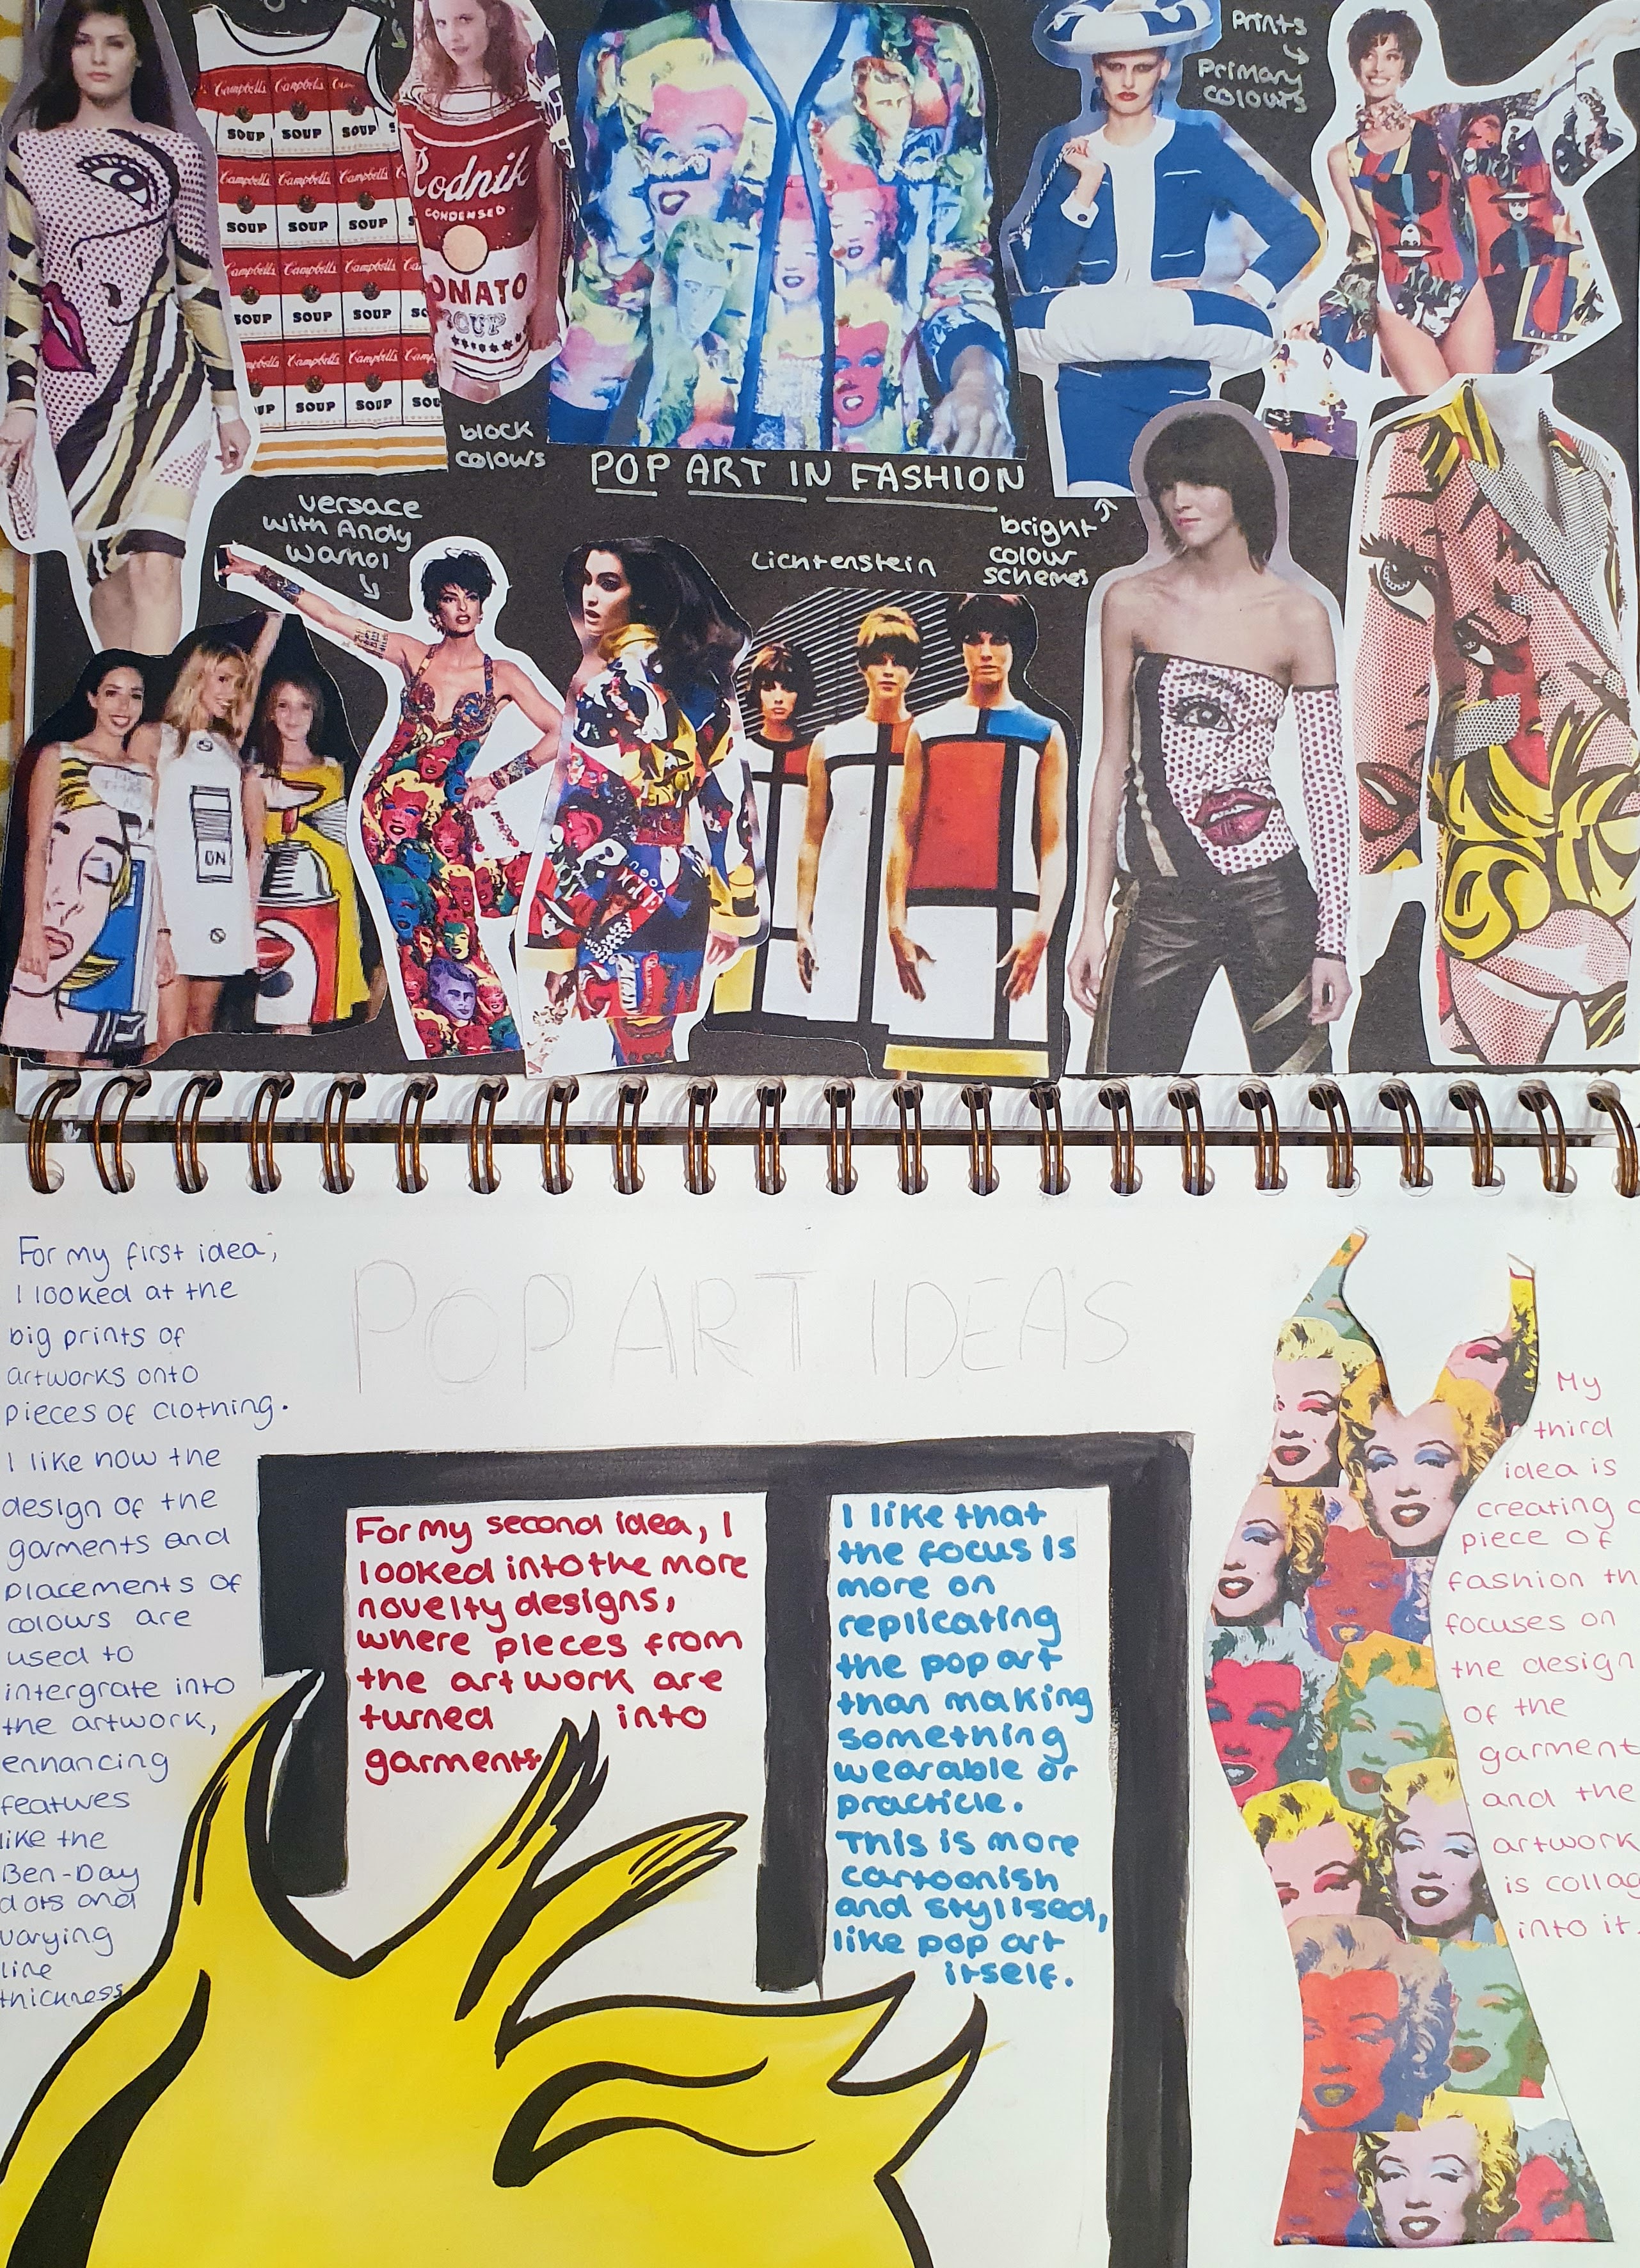 Prints
Primary
colours
Campbell's Campbell's
SOUP SOUP SOUP
Campbell's Campbell's Campbell's
SOUP SOUP SOUP
Campbell's Campbell's Campbell's
SOUP SOUP SOUP
Campbell's Campbell's
SOUP SOUP
Rodnik
CONDENSED
TOMATO
SOUP
block
colours
POP ART IN FASHION
versace
with Andy
Warhol
Lichtenstein
bright
colour
schemes
ON
For my first idea,
I looked at the
big prints of
artworks onto
pieces of clothing.
I like how the
design of the
garments and
placements of
colours are
used to
intergrate into
the artwork,
enhancing
features
like the
Ben-Day
dots and
varying
line
thickness
POP ART IDEAS
For my second idea, I
looked into the more
novelty designs,
where pieces from
the artwork are
turned into
garments.
I like that
the focus is
more on
replicating
the pop art
than making
something
wearable or
practicle.
This is more
cartoonish
and stylised,
like pop art
itself.
My
third
idea is
creating
piece of
fashion th
focuses on
the design
of the
garment
and the
artwork
is collag
into it.